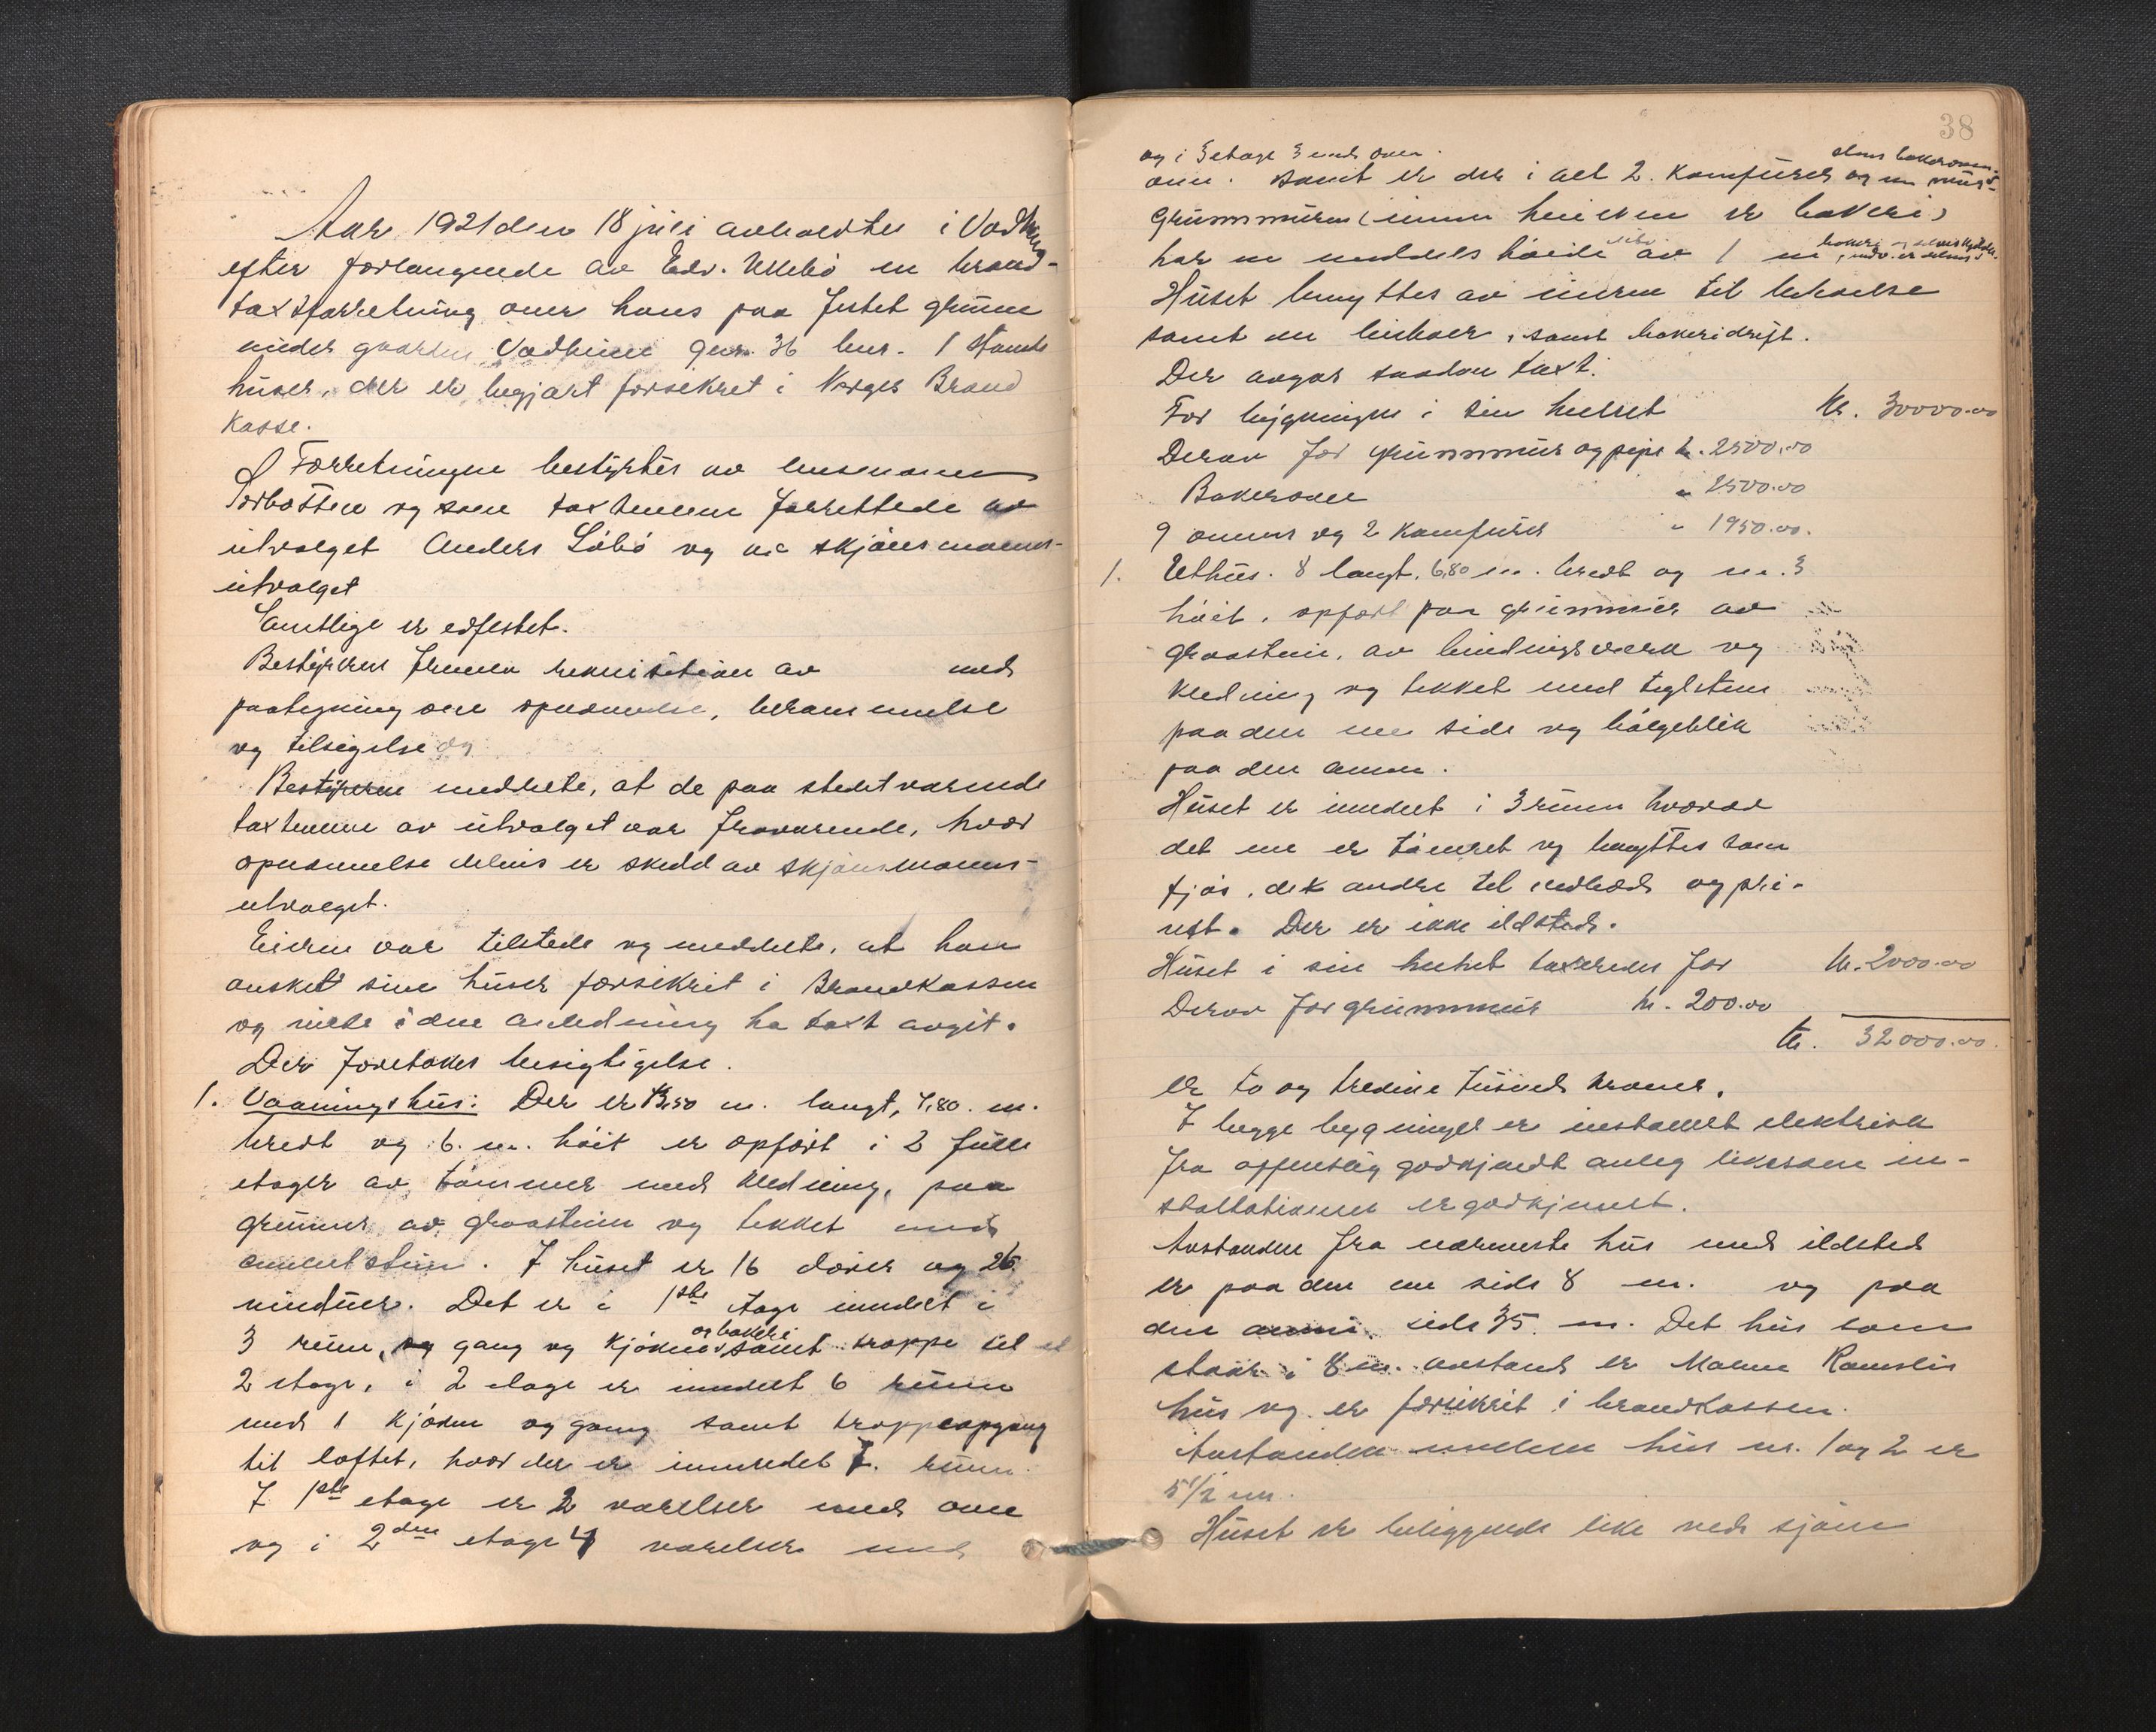 Aar 1921 den 18 juli avholdtes i Vadheim
efter forlangende av Edv. Ullebö en brand-
taxtforretning over hans paa festet grunn
under gaarden Vadheim gnr. 36 bnr. 1 staaende
huser, der er begjært forsikret i Norges Brand
kasse.
Forretningen bestyrtes av lensmann
og som taxtmenn forrettede av
utvalget Anders Löbö og av skjönsmanns-
utvalget
Samtlige er edfestet.
Bestyreren fremla rekvisition av med
paategning om opnævnelse, berammelse
og tilsigelse og
Bestyreren meddelte, at de paa stedet værende
taxtmenn av utvalget var fraværende, hvor
opnævnelse delvis er skedd av skjönsmanns-
utvalget.
Eieren var tilstede og meddelte, at han
ønsket sine huser forsikret i Brandkassen
og vilde i den anledning ha taxt avgit.
Der foretokes besigtigelse.
1. Vaaningshus: Der er 13,50 m. langt, 7,80. m.
bredt og 6. m. höit er opfört i 2 fulle
etager av tömmer med kledning, paa
grunnmur av graastein og tekket med
cementstein. I huset er 16 dörer og 26
vinduer. Det er i 1ste etage inndelt i
og bakeri
3 rum, og gang og kjöken samt trappe til
2 etage, i 2 etage er inndelt 6 rum
med 1 kjöken og gang samt trappeopgang
til loftet, hvor der er innredet 7. rum.
I 1ste etage er 2 værelser med ovn
og i 2den etage 4 værelser med
38
og i 3 etage 3 med ovn.
ovn. Samt er der i alt 2. komfurer og en
Grunnmuren (innen hvilken er bakeri)
har en middels höide av 1 m
Huset benyttes av eieren til beboelse
samt en leieboer, samt bakeridrift.
Der avgas saadan taxt:
For bygningen i sin helhet kr. 30000.00
Derav for grunnmur og pipe kr. 2500.00
Bakerovn " 2500.00
9 ovner og 2 komfurer " 1950.00.
1. Uthus. 8 langt, 6,80 m. bredt og m. 3
höit, opfört paa grunnmur av
graastein, av bindingsverk og
kledning og tekket med teglstein
paa den ene side og bölgeblik
paa den annen.
Huset er inndelt i 3 rum hvorav
det ene er tömret og benyttes som
fjös, de andre til vedbod og pri-
vet. Der er ikke ildsted.
Huset i sin helhet taxeredes for kr. 2000.00
Derav for grunnmur kr. 200.00
kr. 32000.00.
er to og tredive tusind kroner.
I begge bygninger er installert elektrisk
fra offentlig godkjendt anleg likesom in-
stallationen er godkjennt.
Avstanden fra nærmeste hus med ildsted
er paa den ene side 8 m. og paa
den annen side 35. m. Det hus som
staar i 8 m. avstand er
hus og er forsikret i brandkassen.
Avstanden mellem hus nr. 1 og 2 er
5 1/2 m.
Huset er beliggende like ved sjöen